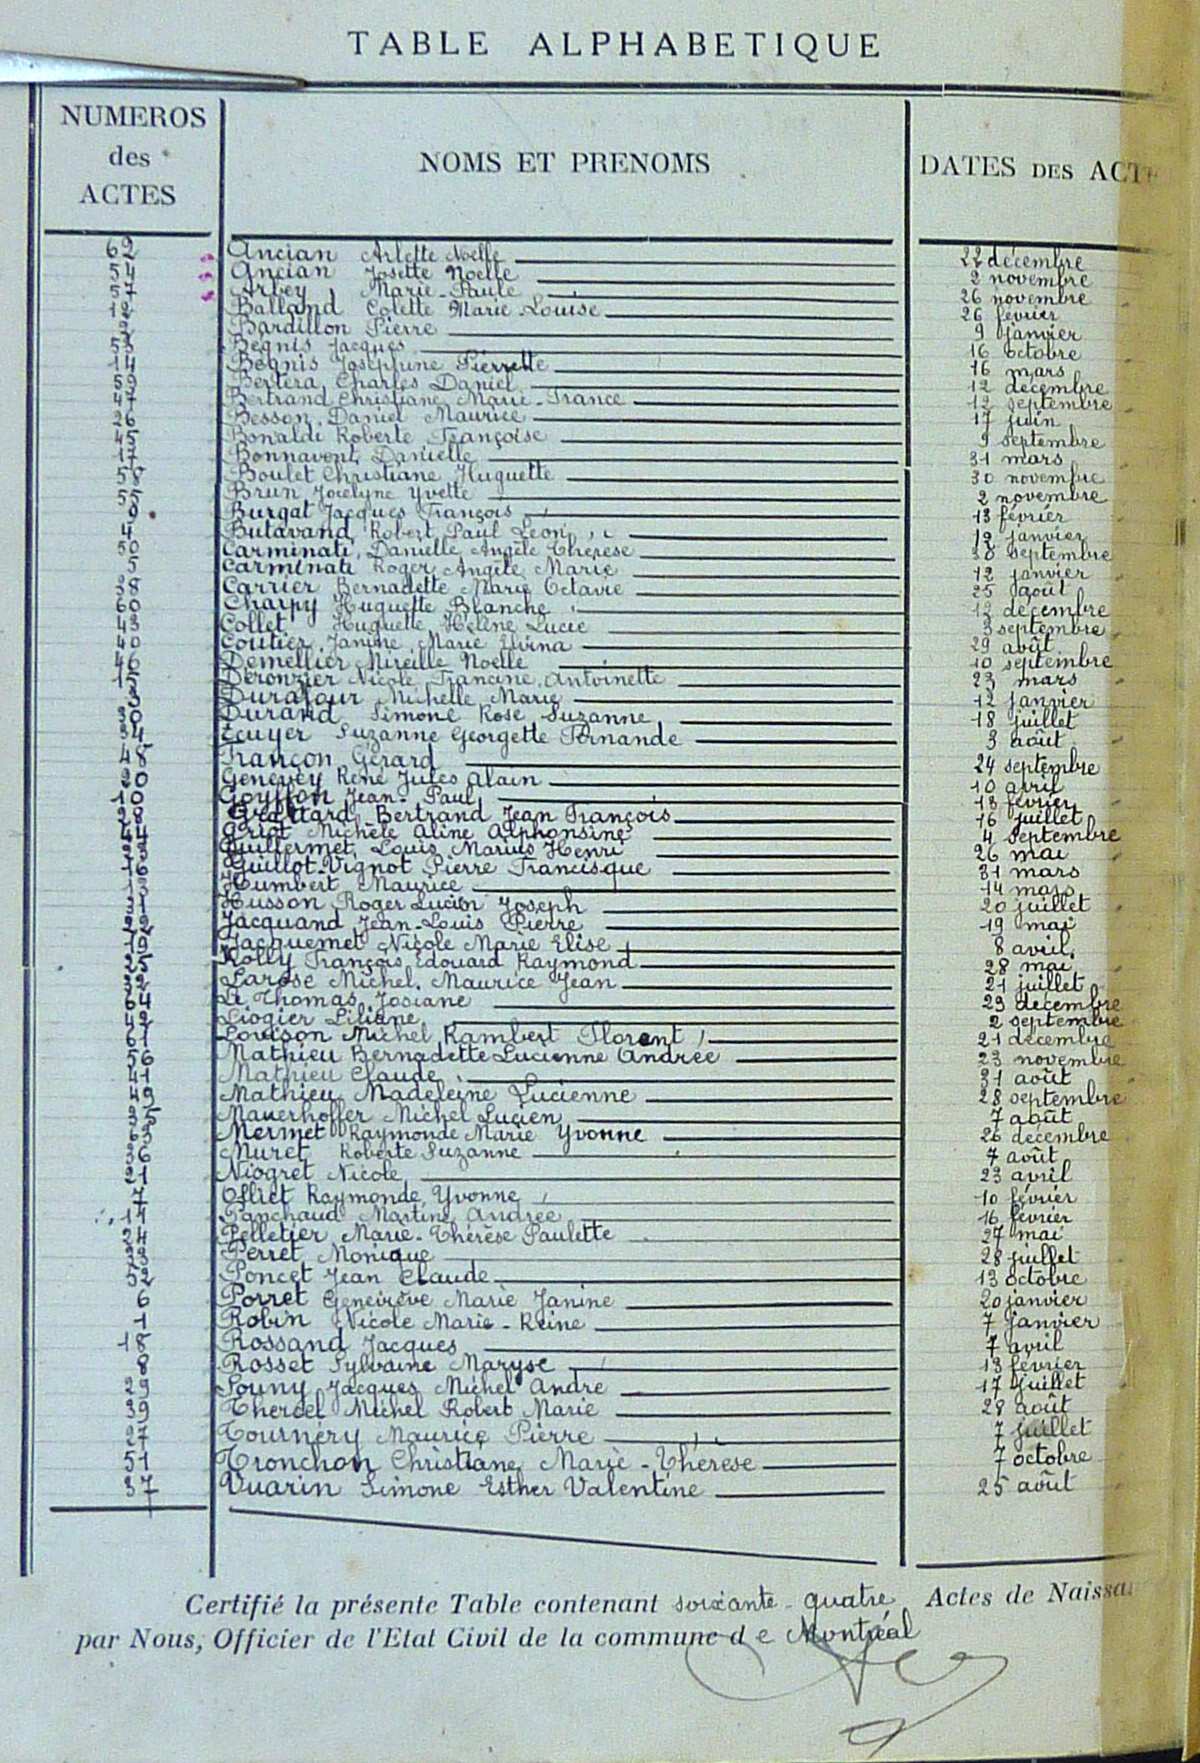 TABLE ALPHABETIQUE
NUMEROS des ACTES NOMS ET PRENOMS DATES DES ACT
62 Ancian Arlette Noelle 22 décembre
54 Ancian Josette Noelle 2 novembre
57 Arbey Marie-Paule 26 novembre
12 Balland Colette Marie Louise 26 février
2 Bardillon Pierre 9 janvier
53 Begnis Jacques 16 octobre
14 Begnis Joséphine Pierrette 16 mars
59 Bertera Charles Daniel 12 décembre
47 Bertrand Christiane Marie-France 12 septembre
26 Besson Daniel Maurice 17 juin
45 Bonaldi Roberte Françoise 9 septembre
17 Bonnavent Danielle 31 mars
58 Boulet Christiane Huguette 30 novembre
55 Brun Jocelyne Yvette 2 novembre
9 Burgat Jacques François 13 février
4 Butavand Robert Paul Léon 12 janvier
50 Carminati Danielle Angèle Thérèse 30 septembre
5 Carminati Roger Angèle Marie 12 janvier
38 Carrier Bernadette Marie Octavie 25 août
60 Charpy Huguette Blanche 12 décembre
43 Collet Huguette Hélène Lucie 3 septembre
40 Coutier Janine Marie 29 août
46 Demellier Mireille Noelle 10 septembre
15 Deronzier Nicole Francine Antoinette 23 mars
3 Durafour Michelle Marie 12 janvier
30 Durand Simone Rose Suzanne 18 juillet
34 Ecuyer Suzanne Georgette Fernande 3 août
48 Françon Gérard 24 septembre
20 Genevey René Jules Alain 10 avril
10 Goyffon Jean-Paul 13 février
28 Bertrand Jean François 16 juillet
44 Griot Michèle Aline Alphonsine 4 septembre
23 Guillermet Louis Marius Henri 26 mai
16 Guillot-Vignot Pierre Francisque 31 mars
13 Humbert Maurice 14 mars
31 Husson Roger Lucien Joseph 20 juillet
22 Jacquand Jean-Louis Pierre 19 mai
19 Jacquemet Nicole Marie Elise 8 avril
25 Kolly François Edouard Raymond 28 mai
32 Larose Michel Maurice Jean 21 juillet
64 Le Thomas Josiane 29 décembre
42 Liogier Liliane 2 septembre
61 Louison Michel Rambert Florent 21 décembre
56 Mathieu Bernadette Lucienne Andrée 23 novembre
41 Mathieu Claude 31 août
49 Mathieu Madeleine Lucienne 28 septembre
35 Mauerhoffer Michel Lucien 7 août
63 Mermet Raymonde Marie Yvonne 26 décembre
36 Muret Roberte Suzanne 7 août
21 Niogret Nicole 23 avril
7 Olliet Raymonde Yvonne 10 février
11 Panchaud Martine Andrée 16 février
24 Pelletier Marie-Thérèse Paulette 27 mai
33 Perret Monique 28 juillet
52 Poncet Jean Claude 13 octobre
6 Porret Geneviève Marie Janine 20 janvier
1 Robin Nicole Marie-Reine 7 janvier
18 Rossand Jacques 7 avril
8 Rosset Sylvaine Maryse 13 février
29 Souny Jacques Michel André 17 juillet
39 Thercel Michel Robert Marie 28 août
27 Tournery Maurice Pierre 7 juillet
51 Tronchon Christiane Marie-Thérèse 7 octobre
37 Vuarin Simone Esther Valentine 25 août
Certifié la présente Table contenant soixante-quatre Actes de Naissa
par Nous, Officier de l'Etat Civil de la commune de Montréal